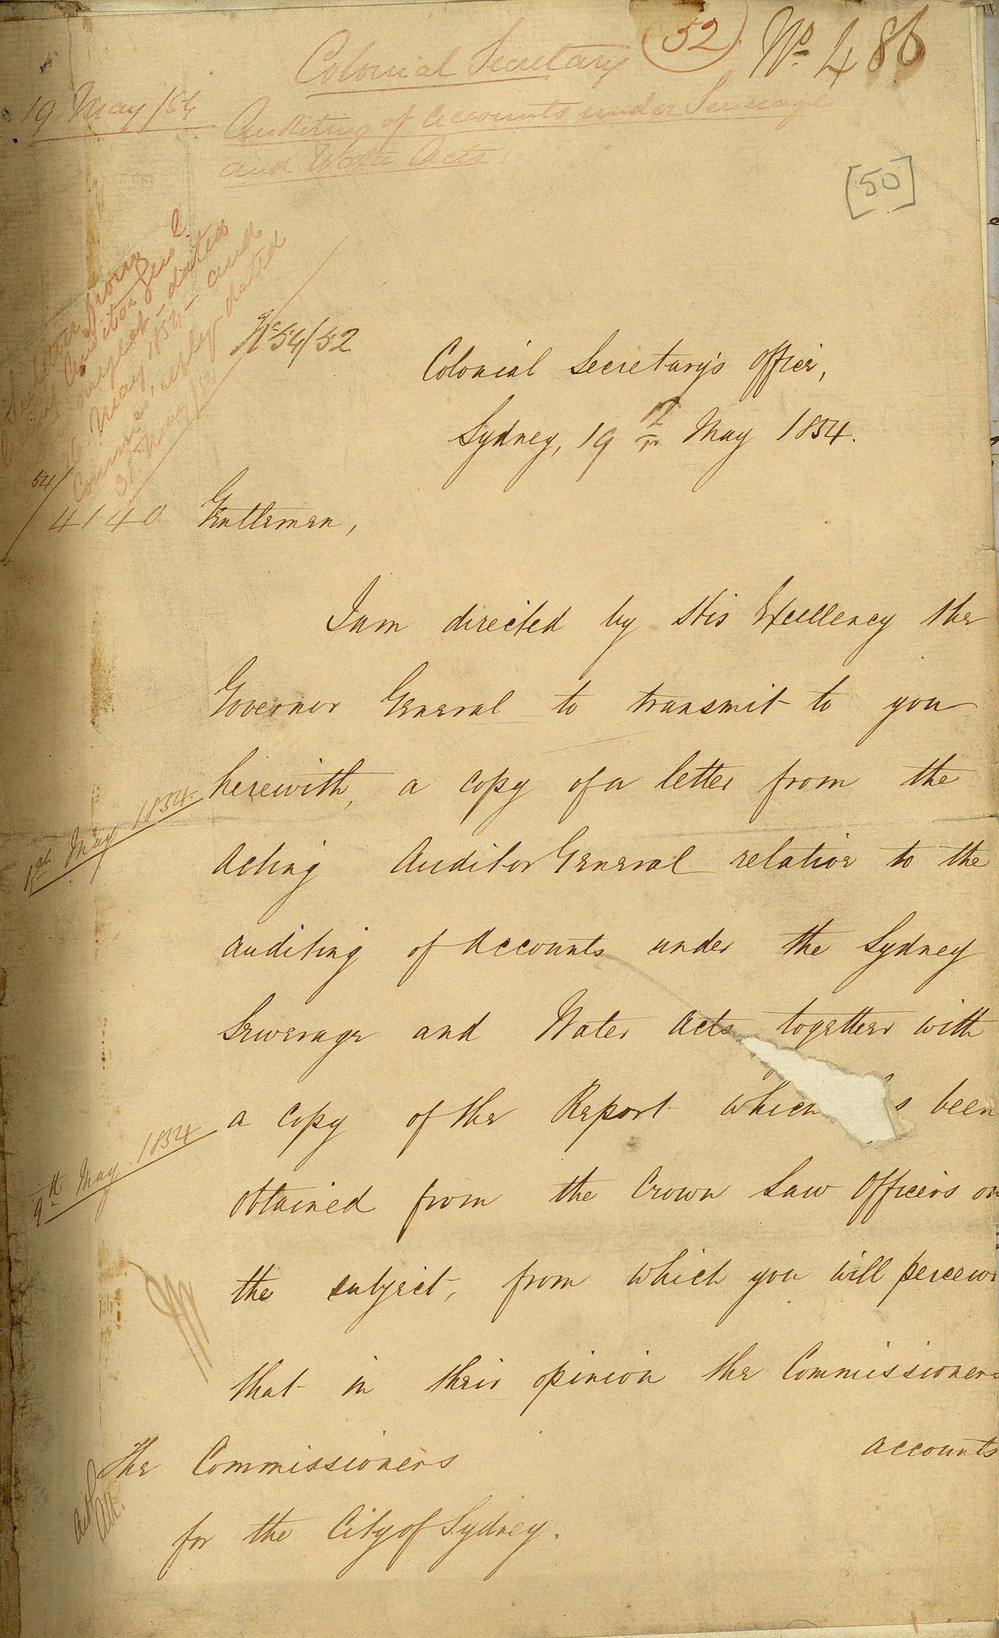 (52) No. 486
Colonial Secretary
19 May/54
Auditing of Accounts under Sewerage
and Water Acts
[50]
See letter from
Auditor Genl.
dated
16 May 1854 and
reply dated
31st May/54
No 54/52
Colonial Secretary's Office,
Sydney, 19th May 1854.
54/4140
Gentlemen,
I am directed by His Excellency the
Governor General to transmit to you
1st May 1854
herewith, a copy of a letter from the
Acting Auditor General relative to the
auditing of Accounts under the Sydney
Sewerage and Water Acts together with
a copy of the Report which s been
9th May 1854
obtained from the Crown Law Officers on
the subject, from which you will perceive
that in their opinion the Commissioners
accounts
The Commissioners
for the City of Sydney.